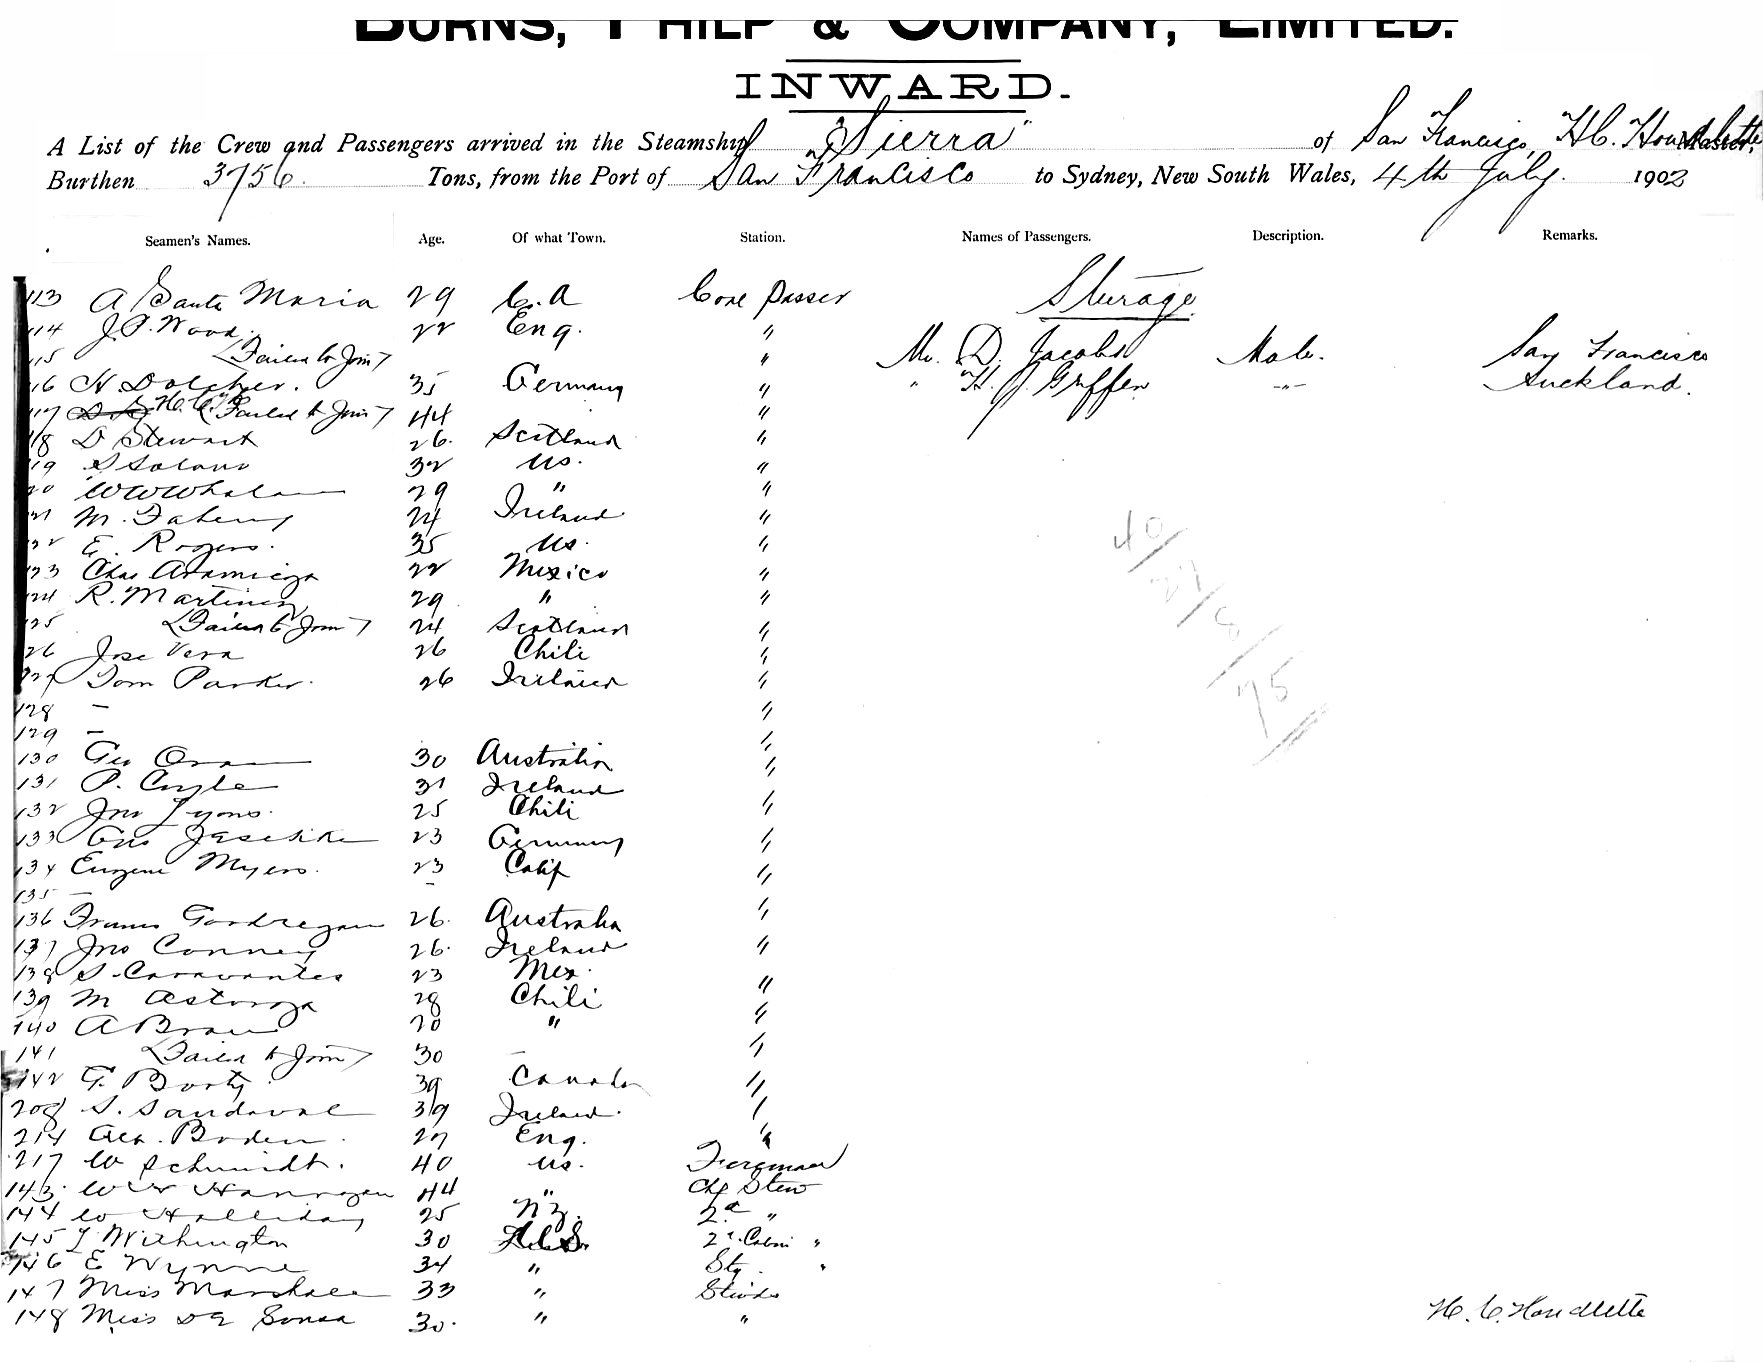 BURNS, PHILP & COMPANY, LIMITED.
INWARD.
A List of the Crew and Passengers arrived in the Steamship "Sierra" of San Francisco, H.C. Houdlette Master,
Burthen 3756 Tons, from the Port of San Francisco to Sydney, New South Wales, 4th July. 1902
Seamen's Names. Age. Of what Town. Station. Names of Passengers. Description. Remarks.
113 A Santa Maria 29 C.A Coal Passer Steerage
114 J.P. Wood 22 Eng. "
115 (Failed to Join) " Mr. D. Jacobs Male. San Francisco
116 H Dolcher. 35 Germany " " H. J. Griffen -"- Auckland.
117 (Failed to Join) 44 "
118 D Stewart 26. Scotland "
119 S Solano 32 US. "
120 W W Whelan 29 " "
121 M. Faheny 24 Ireland "
122 E. Rogers. 35 US. "
123 Chas Aramieza 22 Mexico "
124 R. Martinez 29 " "
125 (Failed to Join) 24 Scotland "
126 Jose Vera 26 Chili "
127 Tom Parker. 26 Ireland "
128 - "
129 - "
130 Geo Oram 30 Australia "
131 P. Coyle 31 Ireland "
132 Jno Lyons. 25 Chili "
133 Gus Jaschke 23 Germany "
134 Eugene Myers. 23 Calif "
135 - - "
136 Frams Gondregan 26. Australia "
137 Jno Conney 26. Ireland "
138 S. Caravantes 23 Mex. "
139 M Astorga 28 Chili "
140 A Bravo 20 " "
141 (Failed to Join) 30 - "
142 G. Borty 39 Canada "
208 S. Sandoval 39 Ireland. "
214 Alex. Boden. 27 Eng. "
217 W Schmidt. 40 US. Fireman
143. W Hannigan 44 " Chf Stew
144 W Halliday 25 NZ. 2d "
145 T Withington 30 2d. Cabin "
146 E Wynne 34 " Stg. "
147 Miss Marshall 33 " Stwds
148 Miss De Sousa 30. " "
40
27
8
75
H. C. Houdlette